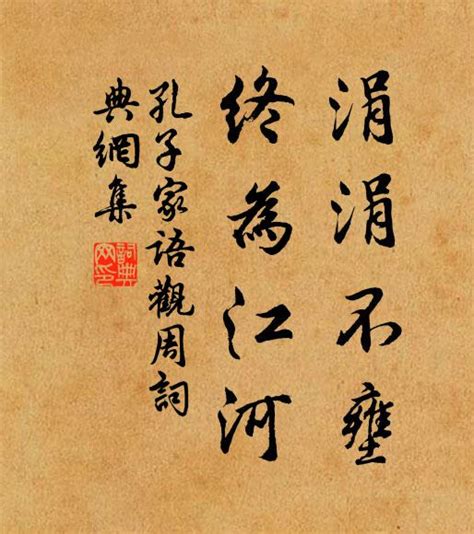 涓涓不壅
終為江河
孔子家语觀周詞
典網集
詞典
网印